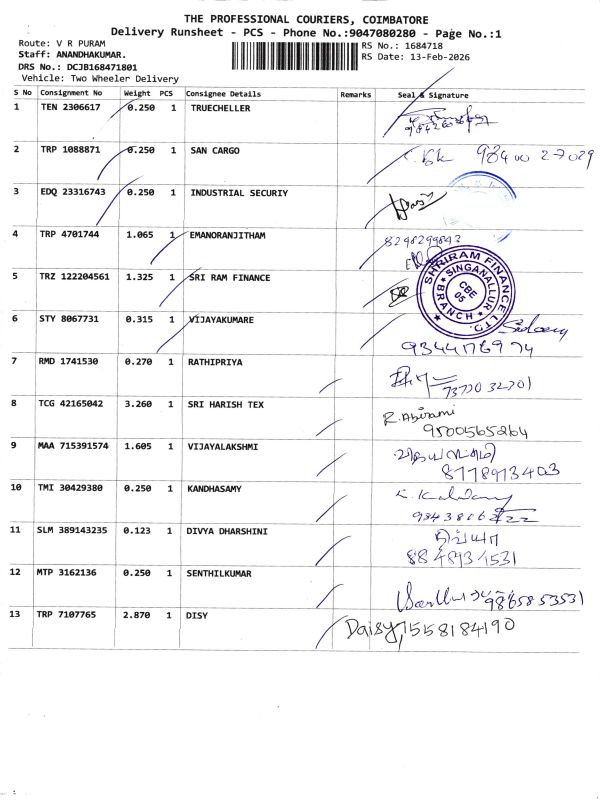 THE PROFESSIONAL COURIERS, COIMBATORE
Delivery Runsheet - PCS - Phone No.:9047080280 - Page No.:1
Route: V R PURAM
Staff: ANANDHAKUMAR.
DRS No.: DCJB168471801
Vehicle: Two Wheeler Delivery
RS No.: 1684718
RS Date: 13-Feb-2026
S No Consignment No Weight PCS Consignee Details Remarks Seal & Signature
1 TEN 2306617 0.250 1 TRUECHELLER
2 TRP 1088871 0.250 1 SAN CARGO
3 EDQ 23316743 0.250 1 INDUSTRIAL SECURIY
4 TRP 4701744 1.065 1 EMANORANJITHAM 8298299843
5 TRZ 122204561 1.325 1 SRI RAM FINANCE
SHRIRAM FINANCE LTD.
SINGANALLUR BRANCH
CBE
05
6 STY 8067731 0.315 1 VIJAYAKUMARE
9344176974
7 RMD 1741530 0.270 1 RATHIPRIYA
73730 32701
8 TCG 42165042 3.260 1 SRI HARISH TEX R.Abirami
9500565264
9 MAA 715391574 1.605 1 VIJAYALAKSHMI
8778973403
10 TMI 30429380 0.250 1 KANDHASAMY
11 SLM 389143235 0.123 1 DIVYA DHARSHINI திவ்யா
12 MTP 3162136 0.250 1 SENTHILKUMAR
9865853531
13 TRP 7107765 2.870 1 DISY Daisy,7558184190